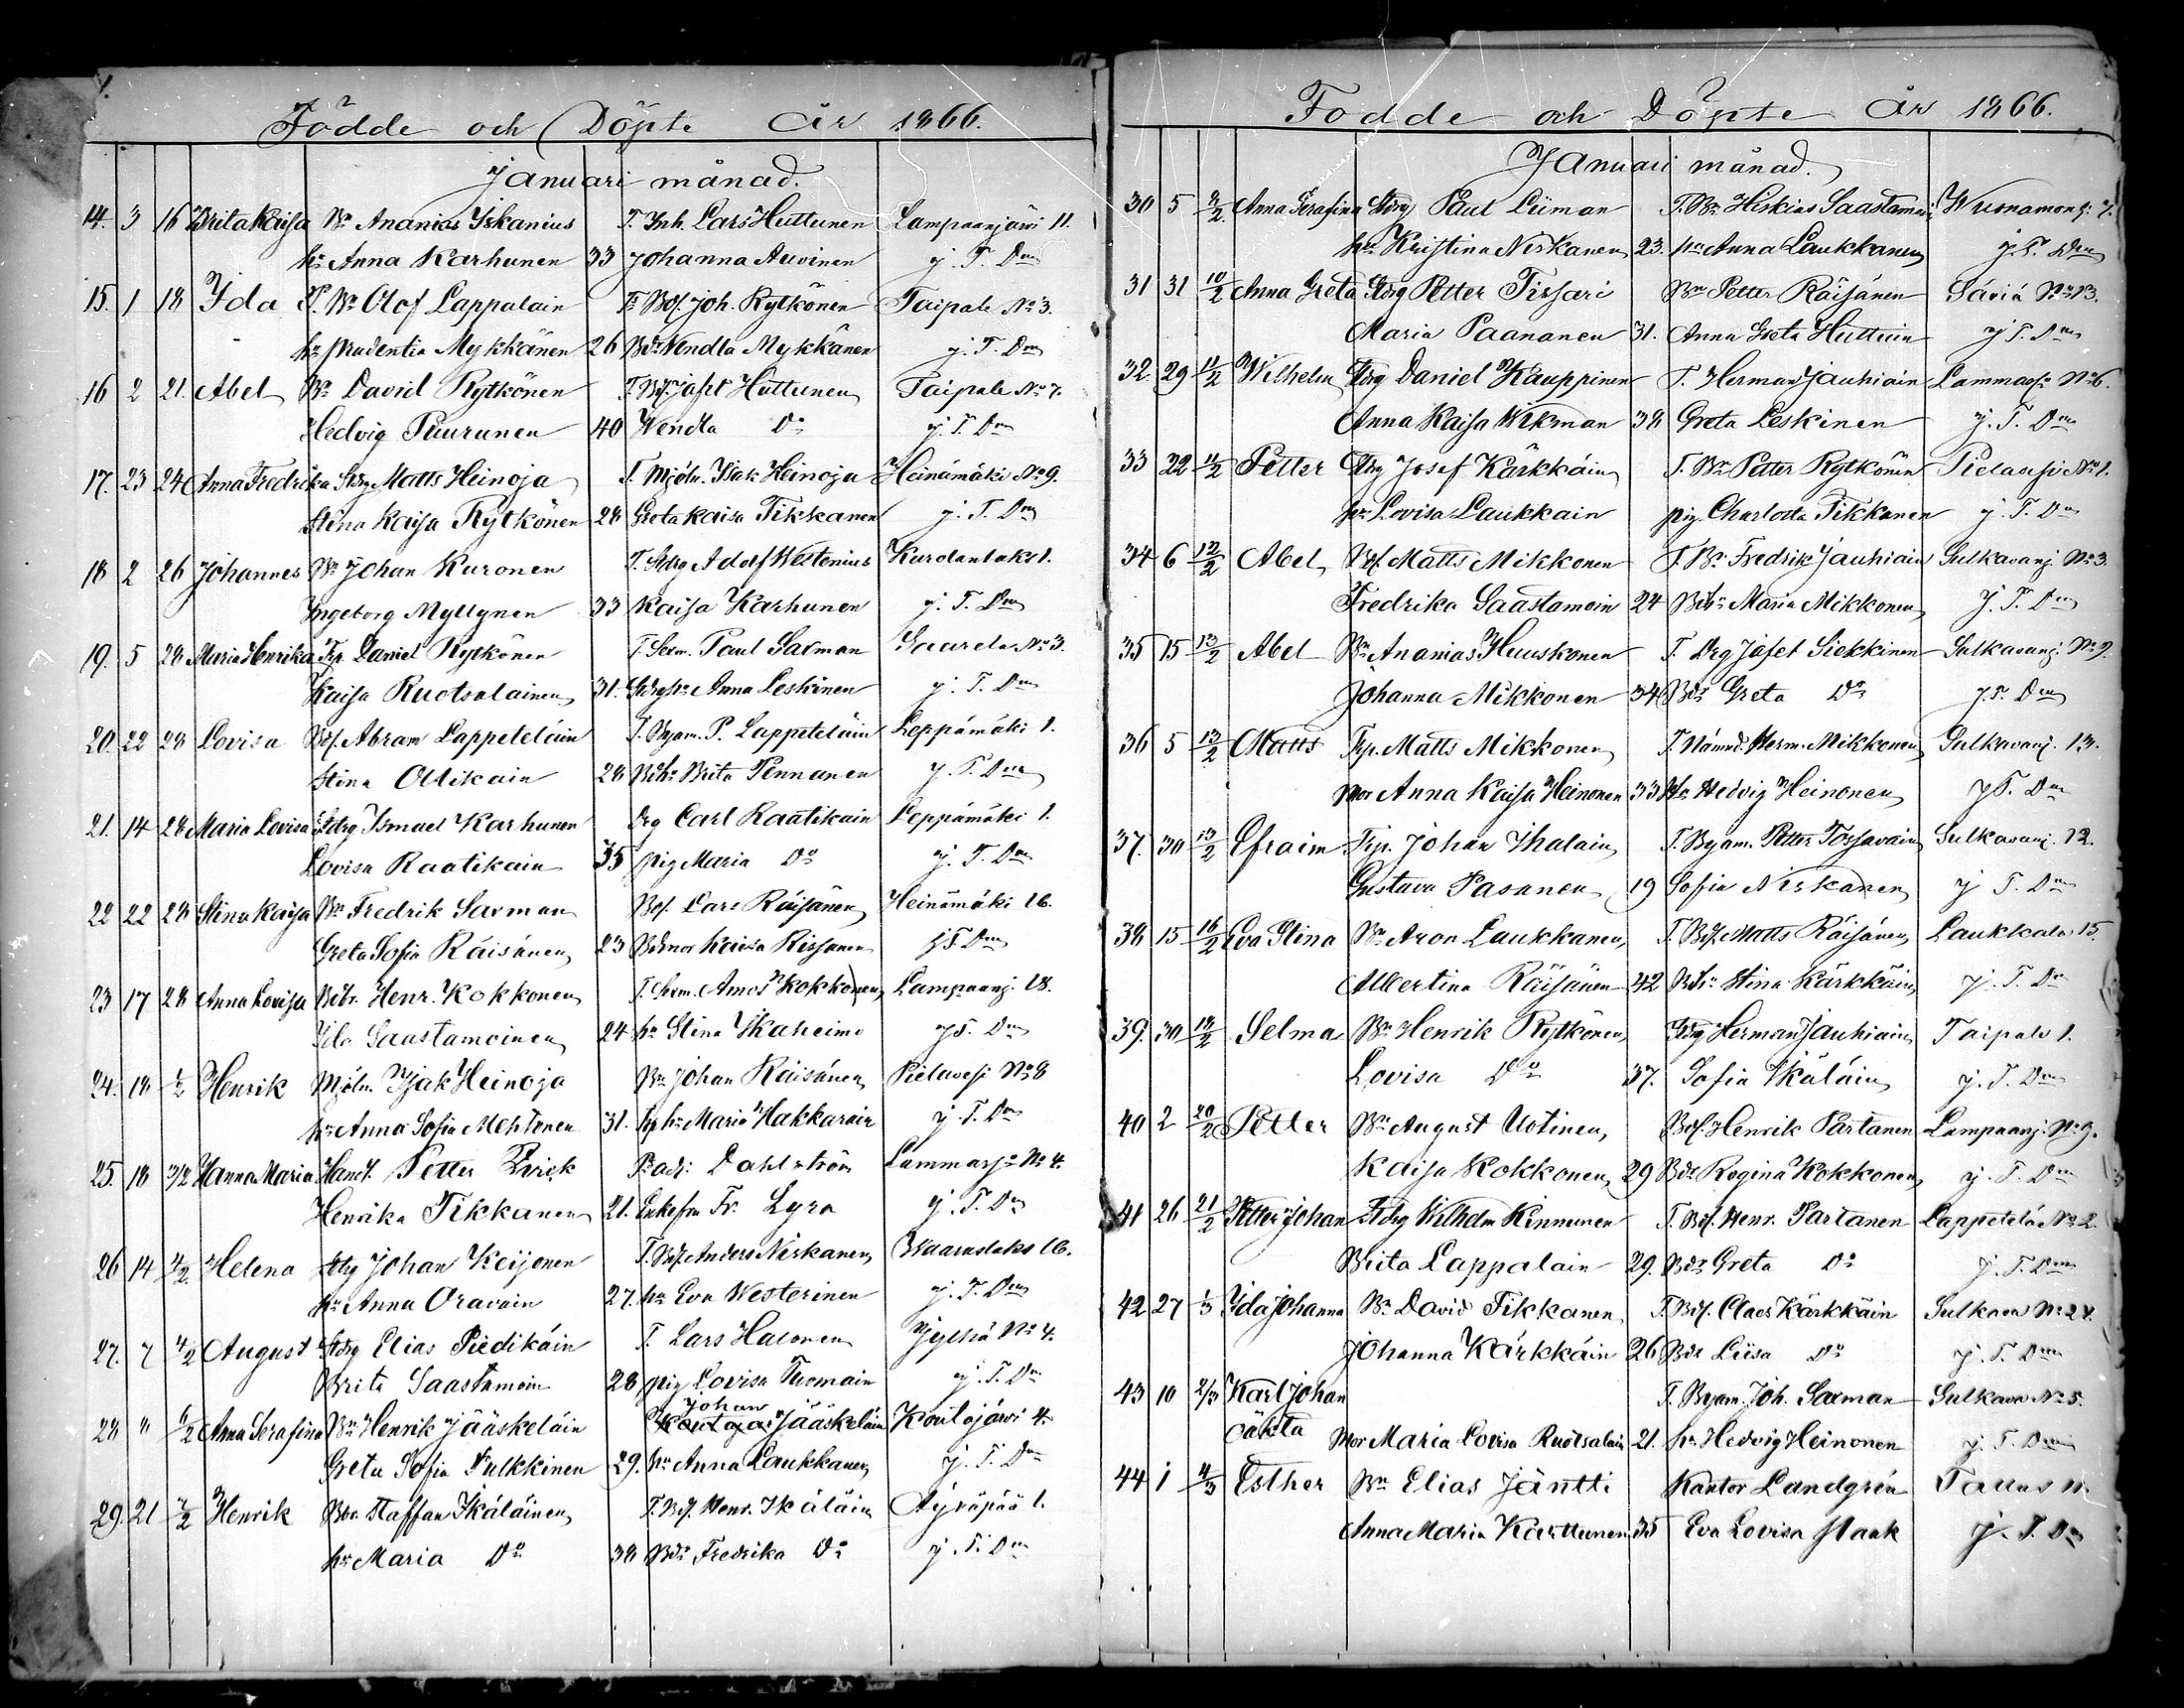 Födde och Döpte År 1866.
Januari månad.
14. 3 16 Brita Kaisa Bn Ananias Iskanius T. Inh. Lars Huttunen Lampaanjärvi 11.
hn Anna Karhunen 33 Johanna Auvinen j. T. Dm
15. 1 18 Ida Bn Olof Lappalain Bof. Joh. Rytkönen Taipale No 3.
hn Prudentia Mykkänen 26 Wendla Mykkänen j. T. Dm
16 2 21. Abel Bn David Rytkönen T. Bof. Jafet Huttunen Taipale No 7.
Hedvig Puurunen 40 Wendla Do j. T. Dm
17. 23 24 Anna Fredrika Matts Heinoja T. Mjöln. Isak Heinoja Heinämäki No 9.
Stina Kaisa Rytkönen 28 Greta Kaisa Tikkanen j. T. Dm
18 2 26 Johannes Bn Johan Kuronen T. Adolf Westenius Kurolanlaks 1.
Ingeborg Myllynen 33 Kaisa Karhunen j. T. Dm
19. 5 28 Maria Henrika Trp. Daniel Rytkönen T. Sexm. Paul Saxman Saarela No 3.
Kaisa Ruotsalainen 31. Anna Leskinen j. T. Dm
20. 22 28 Lovisa Bof. Abram Lappeteläin T. Byam. P. Lappeteläin Leppämäki 1.
Stina Ollikain 28 Brita Pennanen j. T. Dm
21. 14 28 Maria Lovisa Ismael Karhunen Drg Carl Raatikain Leppämäki 1.
Lovisa Raatikain 35 pig Maria Do j. T. Dm
22 22 28 Stina Kaisa Bn Fredrik Saxman Bof. Lars Räisänen Heinämäki 16.
Greta Sofia Räisänen 23 Kaisa Rissanen j T Dm
23 17 28 Anna Lovisa Henr. Kokkonen T. Sexm. Amos Kokkonen Lampaanj. 18.
Ida Saastamoinen 24 hn Stina Ikaheimo j T. Dm
24. 18 1/2 Henrik Mjöln. Isak Heinoja Bn Johan Räisänen Pielavesi No 8
hn Anna Sofia Mehtonen 31. hn Maria Hakkarain j. T. Dm
25. 18 3/2 Hanna Maria Handl. Petter Dahlström Lammasj. No 4.
Henrika Tikkanen 21. Enkefru Fr. Lyra j. T. Dm
26 14 4/2 Helena Johan Keijonen T. Bof. Anders Niskanen Waaraslaks 16.
hn Anna Oravain 27. hn Eva Westerinen j. T. Dm
27. 7 4/2 August Elias Piedikäin T. Lars Halonen Jylhä No 4.
Brita Saastamoin 28 pig Lovisa Tuomain j. T. Dm
Johan
28 " 6/2 Anna Serafina Bn Henrik Jääskeläin Jääskeläin Koutajärvi 4.
Greta Sofia Pulkkinen 29. hn Anna Laukkanen j. T. Dm
29. 21 7/2 Henrik Staffan Ikäläinen T. Bof. Henr. Ikäläin Äyräpää 1.
hn Maria Do 38 Fredrika Do j. T. Dm
Födde och Döpte År 1866.
Januari månad.
30 5 9/2 Anna Serafina Paul Liiman T. Bn Hiskias Saastamoi Wuonamonj. 7.
hn Kristina Niskanen 23. hn Anna Laukkanen j. T. Dm
31 31 10/2 Anna Greta Petter Tissari Bn Petter Räisänen Säviä No 13.
Maria Paananen 31. Anna Greta Huttuin j T. Dm
32 29 11/2 Wilhelm Daniel Kauppinen T. Herman Jauhiain Lammass. No 6.
Anna Kaisa Wikman 38 Greta Leskinen j. T. Dm
33 22 11/2 Petter Josef Kärkkäin T. Bn Petter Rytkönen Pielavesi No 1.
hn Lovisa Laukkain pig. Charlotta Tikkanen j. T. Dm
34 6 12/2 Abel Bof. Matts Mikkonen T. Bn Fredrik Jauhiain Sulkavanj. No 3.
Fredrika Saastamoin 24 Maria Mikkonen j. T. Dm
35 15 13/2 Abel Bn Ananias Huuskonen T. Drg Jafet Siekkinen Sulkavanj. No 9.
Johanna Mikkonen 34 Greta Do j. T. Dm
36 5 13/2 Matts Trp. Matts Mikkonen T. Nämnd. Herm. Mikkonen Sulkavanj. 13.
Mor Anna Kaisa Heinonen 33 Hn Hedvig Heinonen j T. Dm
37. 30 13/2 Efraim Trp. Johan Ihalain T. Byam. Petter Tossavain Sulkavanj. 12.
Gustava Pasanen 19 Sofia Niskanen j T. Dm
38 15 16/2 Eva Stina Bn Aron Laukkanen T. Bof. Matts Räisänen Laukkala 15.
Albertina Räisänen 42 Stina Kärkkäin j. T. Dm
39. 30 18/2 Selma Bn Henrik Rytkönen Herman Jauhiain Taipale 1.
Lovisa Do 37. Sofia Ikäläin j. T. Dm
40 2 20/2 Petter Bn August Uotinen Bof. Henrik Partanen Lampaanj. No 9.
Kaisa Kokkonen 29 Regina Kokkonen j. T. Dm
41 26 21/2 Petter Johan Wilhelm Kinnunen T. Bof. Henr. Partanen Lappetelä No 2
Brita Lappalain 29. Greta Do j. T. Dm
42 27 1/3 Ida Johanna Bn David Tikkanen T. Bof. Claes Kärkkäin Sulkava No 24.
Johanna Kärkkäin 26 Liisa Do j. T. Dm
43 10 2/3 Karl Johan T. Byam. Joh. Saxman Sulkava No 5.
oäkta Mor Maria Lovisa Ruotsalain 21. hn Hedvig Heinonen j. T. Dm
44 1 4/3 Esther Bn Elias Jäntti Kantor Landgrén Tallus 11.
Anna Maria Karttunen 35 Eva Lovisa Staak j. T. Dm